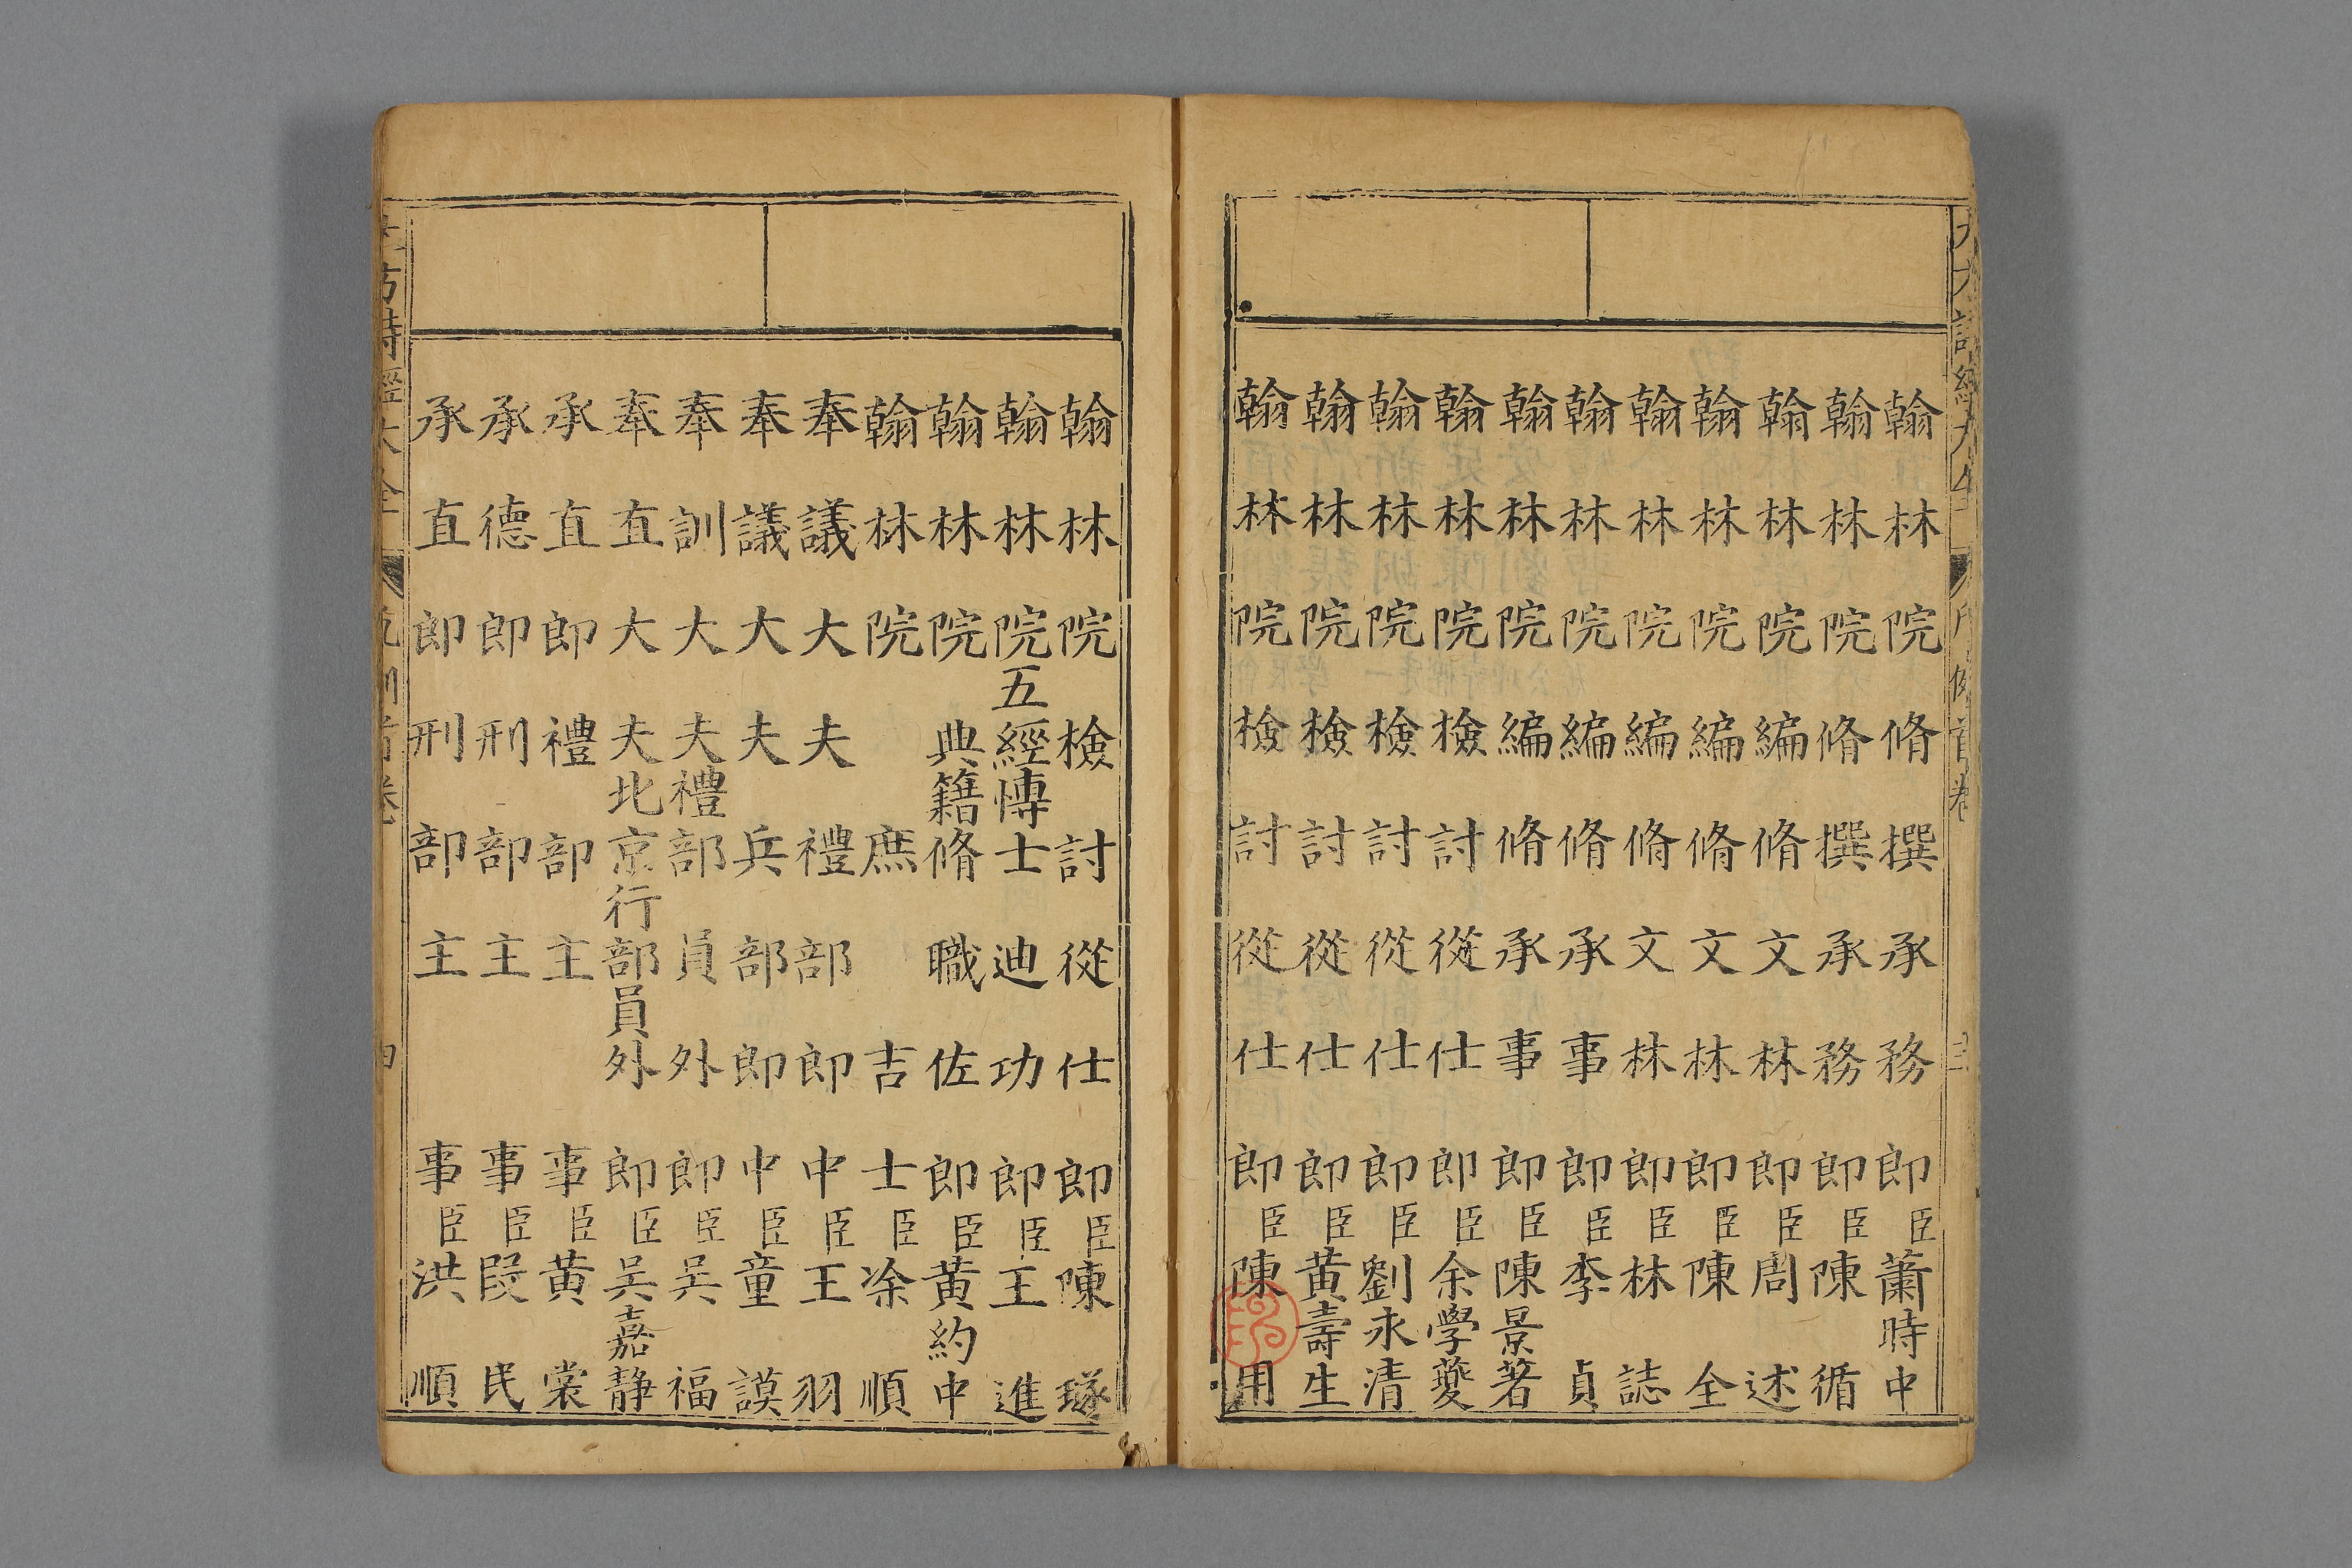 翰林院脩撰承務郎臣蕭時中
翰林院脩撰承務郎臣陳循
翰林院編脩文林郎臣周述
翰林院編脩文林郎臣陳全
翰林院編脩文林郎臣林誌
翰林院編脩承事郎臣李貞
翰林院編脩承事郎臣陳景著
翰林院檢討從仕郎臣余學夔
翰林院檢討從仕郎臣劉永清
翰林院檢討從仕郎臣黄壽生
翰林院檢討從仕郎臣陳用
翰林院檢討從仕郎臣陳璲
翰林院五經慱士迪功郎臣王進
翰林院典籍脩職佐郎臣黄約中
翰林院庶吉士臣凃順
奉議大夫禮部郎中臣王羽
奉議大夫兵部郎中臣童謨
奉訓大夫禮部員外郎臣吳福
奉直大夫北京行部員外郎臣吳嘉静
承直郎禮部主事臣黄裳
承德郎刑部主事臣段民
承直郎刑部主事臣洪順